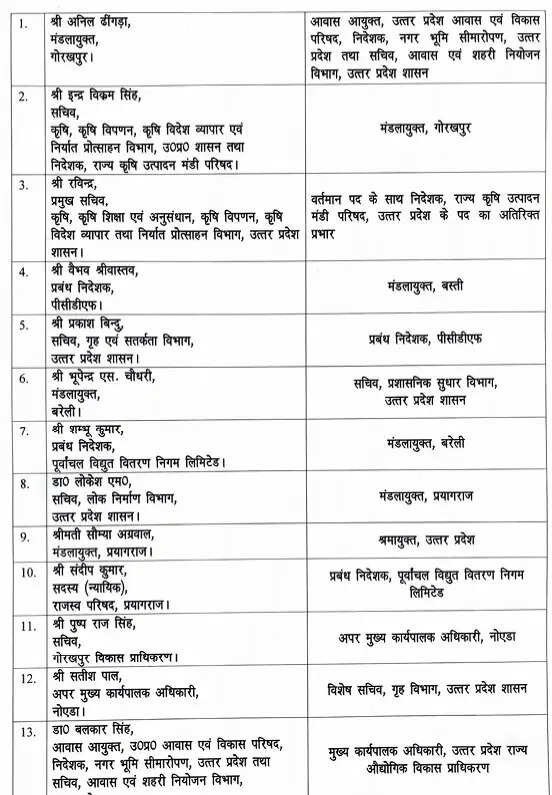 1.
श्री अनिल ढींगड़ा,
मंडलायुक्त,
गोरखपुर।
आवास आयुक्त, उत्तर प्रदेश आवास एवं विकास
परिषद, निदेशक, नगर भूमि सीमारोपण, उत्तर
प्रदेश तथा सचिव, आवास एवं शहरी नियोजन
विभाग, उत्तर प्रदेश शासन
2.
श्री इन्द्र विक्रम सिंह,
सचिव,
कृषि, कृषि विपणन, कृषि विदेश व्यापार एवं
निर्यात प्रोत्साहन विभाग, उ0प्र0 शासन तथा
निदेशक, राज्य कृषि उत्पादन मंडी परिषद।
मंडलायुक्त, गोरखपुर
3.
श्री रविन्द्र,
प्रमुख सचिव,
कृषि, कृषि शिक्षा एवं अनुसंधान, कृषि विपणन, कृषि
विदेश व्यापार तथा निर्यात प्रोत्साहन विभाग, उत्तर प्रदेश
शासन।
वर्तमान पद के साथ निदेशक, राज्य कृषि उत्पादन
मंडी परिषद, उत्तर प्रदेश के पद का अतिरिक्त
प्रभार
4.
श्री वैभव श्रीवास्तव,
प्रबंध निदेशक,
पीसीडीएफ।
मंडलायुक्त, बस्ती
5.
श्री प्रकाश बिन्दु,
सचिव, गृह एवं सतर्कता विभाग,
उत्तर प्रदेश शासन।
प्रबंध निदेशक, पीसीडीएफ
6.
श्री भूपेन्द्र एस. चौधरी,
मंडलायुक्त,
बरेली।
सचिव, प्रशासनिक सुधार विभाग,
उत्तर प्रदेश शासन
7.
श्री शम्भू कुमार,
प्रबंध निदेशक,
पूर्वांचल विद्युत वितरण निगम लिमिटेड।
मंडलायुक्त, बरेली
8.
डा0 लोकेश एम0,
सचिव, लोक निर्माण विभाग,
उत्तर प्रदेश शासन।
मंडलायुक्त, प्रयागराज
9.
श्रीमती सौम्या अग्रवाल,
मंडलायुक्त, प्रयागराज।
श्रमायुक्त, उत्तर प्रदेश
10.
श्री संदीप कुमार,
सदस्य (न्यायिक),
राजस्व परिषद, प्रयागराज।
प्रबंध निदेशक, पूर्वांचल विद्युत वितरण निगम
लिमिटेड
11.
श्री पुष्प राज सिंह,
सचिव,
गोरखपुर विकास प्राधिकरण।
अपर मुख्य कार्यपालक अधिकारी, नोएडा
12.
श्री सतीश पाल,
अपर मुख्य कार्यपालक अधिकारी,
नोएडा।
विशेष सचिव, गृह विभाग, उत्तर प्रदेश शासन
13.
डा0 बलकार सिंह,
आवास आयुक्त, उ0प्र0 आवास एवं विकास परिषद,
निदेशक, नगर भूमि सीमारोपण, उत्तर प्रदेश तथा
सचिव, आवास एवं शहरी नियोजन विभाग,
मुख्य कार्यपालक अधिकारी, उत्तर प्रदेश राज्य
औद्योगिक विकास प्राधिकरण